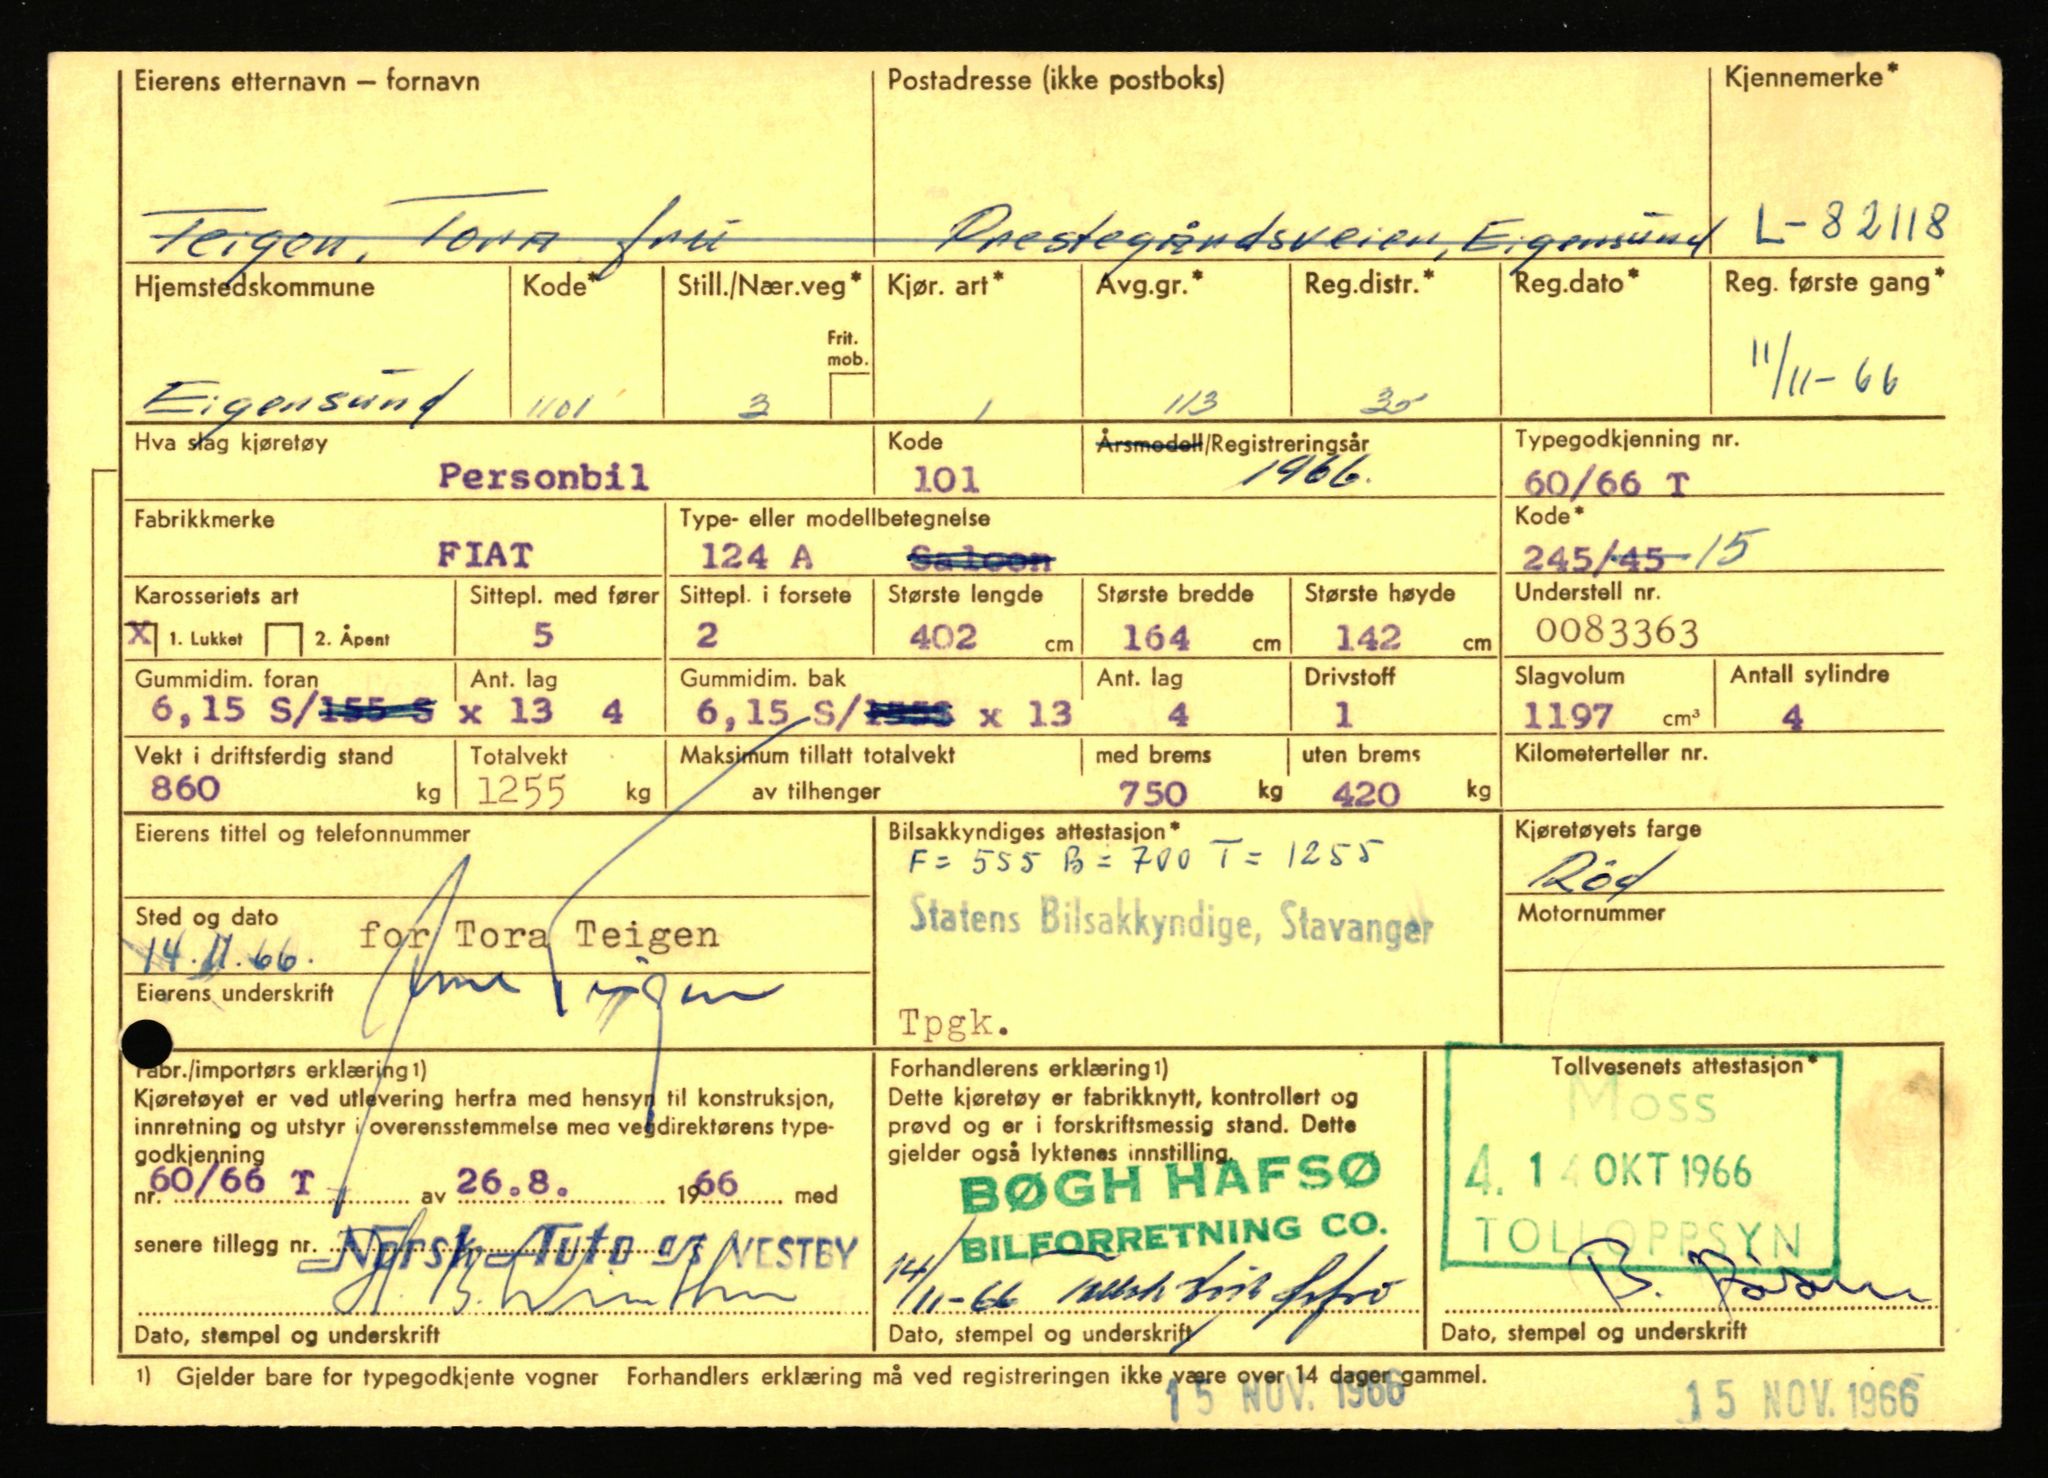 Eierens etternavn — fornavn Postadresse (ikke postboks) Kjennemerke*
Teigen, Tora fru Prestegårdsveien, Eigersund L-82118
Hjemstedskommune Kode* Still./Nær.veg* Kjør. art* Avg.gr.* Reg.distr.* Reg.dato* Reg. første gang*
Frit. mob.
Eigersund 1101 3 1 113 11/11-66
Hva slag kjøretøy Kode Årsmodell/Registreringsår Typegodkjenning nr.
Personbil 101 1966. 60/66 T
Fabrikkmerke Type- eller modellbetegnelse Kode*
FIAT 124 A Saloon 245/45 15
Karosseriets art Sittepl. med fører Sittepl. i forsete Største lengde Største bredde Største høyde Understell nr.
X 1. Lukket 2. Åpent 5 2 402 cm 164 cm 142 cm 0083363
Gummidim. foran Ant. lag Gummidim. bak Ant. lag Drivstoff Slagvolum Antall sylindre
6,15 S/155 S x 13 4 6,15 S/155S x 13 4 1 1197 cm³ 4
Vekt i driftsferdig stand Totalvekt Maksimum tillatt totalvekt med brems uten brems Kilometerteller nr.
860 kg 1255 kg av tilhenger 750 kg 420 kg
Eierens tittel og telefonnummer Bilsakkyndiges attestasjon* Kjøretøyets farge
F = 555 B = 700 T = 1255 Rød
Sted og dato Statens Bilsakkyndige, Stavanger Motornummer
14.11.66. for Tora Teigen
Eierens underskrift Teigen
Tpgk.
Fabr./importørs erklæring1) Forhandlerens erklæring1) Tollvesenets attestasjon*
Kjøretøyet er ved utlevering herfra med hensyn til konstruksjon,
innretning og utstyr i overensstemmelse med vegdirektørens type-
godkjenning
nr. 60/66 T av 26.8. 1966 med
senere tillegg nr. Norsk Auto a/s VESTBY
Dato, stempel og underskrift
Dette kjøretøy er fabrikknytt, kontrollert og
prøvd og er i forskriftsmessig stand. Dette
gjelder også lyktenes innstilling.
BØGH HAFSØ
BILFORRETNING CO.
14/11-66
Dato, stempel og underskrift
Moss
4. 14 OKT 1966
TOLLOPPSYN
B.
Dato, stempel og underskrift
1) Gjelder bare for typegodkjente vogner Forhandlers erklæring må ved registreringen ikke være over 14 dager gammel.
15 NOV. 1966 15 NOV. 1966